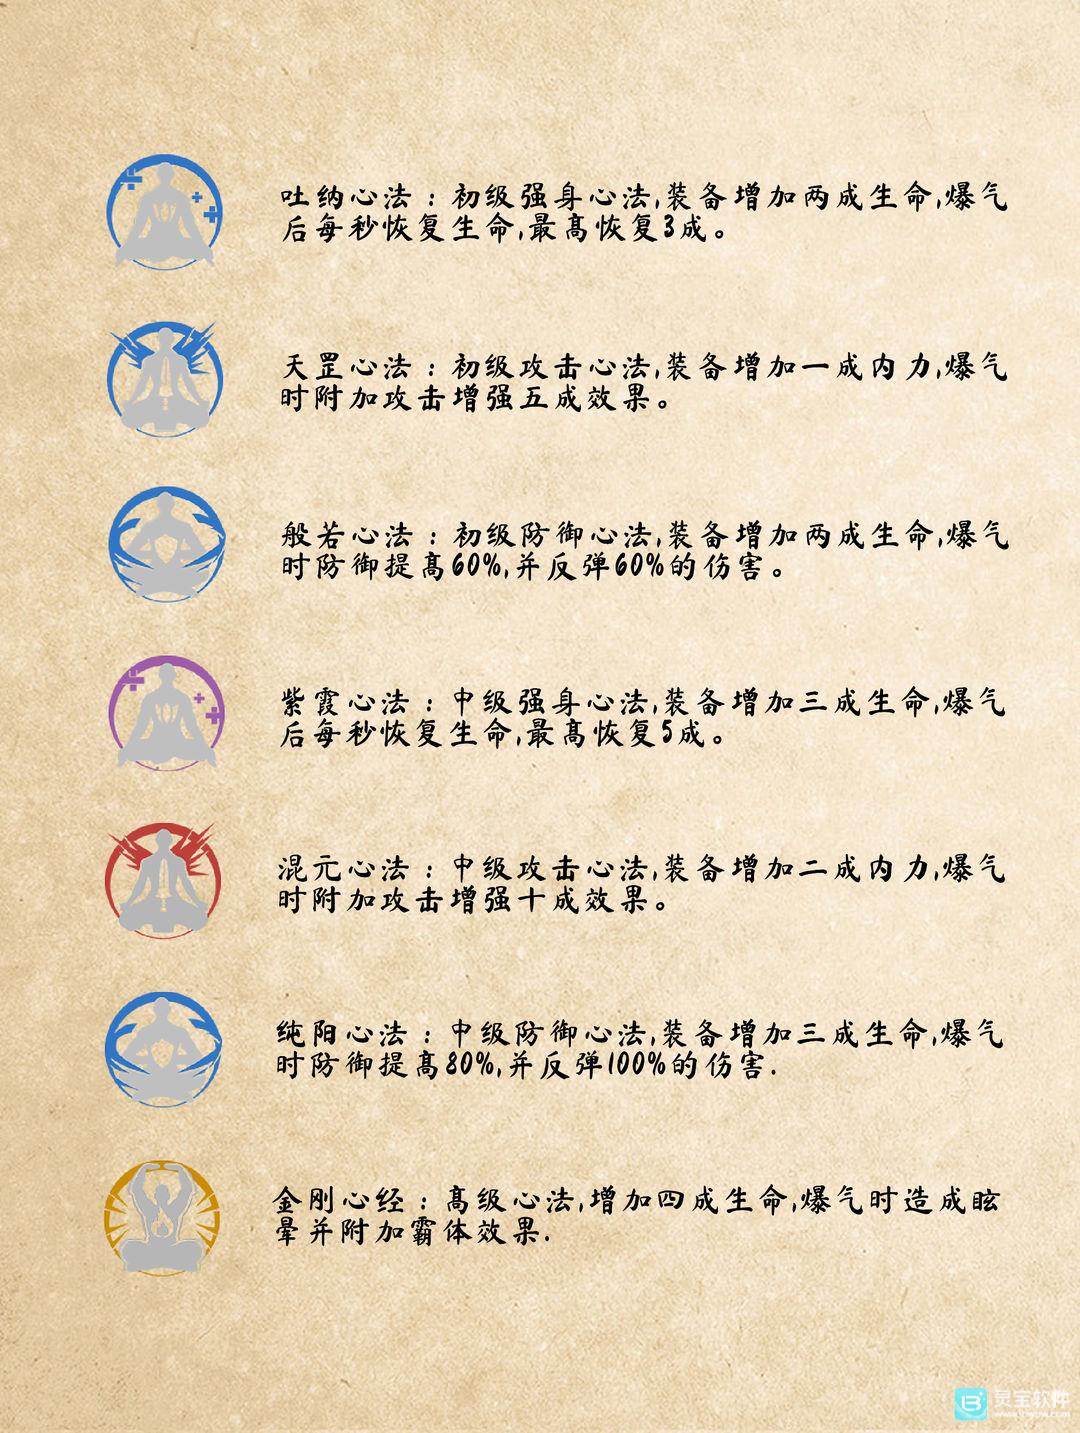 吐纳心法：初级强身心法,装备增加两成生命,爆气
后每秒恢复生命,最高恢复3成。
天罡心法：初级攻击心法,装备增加一成内力,爆气
时附加攻击增强五成效果。
般若心法：初级防御心法,装备增加两成生命,爆气
时防御提高60%,并反弹60%的伤害。
紫霞心法：中级强身心法,装备增加三成生命,爆气
后每秒恢复生命,最高恢复5成。
混元心法：中级攻击心法,装备增加二成内力,爆气
时附加攻击增强十成效果。
纯阳心法：中级防御心法,装备增加三成生命,爆气
时防御提高80%,并反弹100%的伤害.
金刚心经：高级心法,增加四成生命,爆气时造成眩
晕并附加霸体效果.
灵宝软件